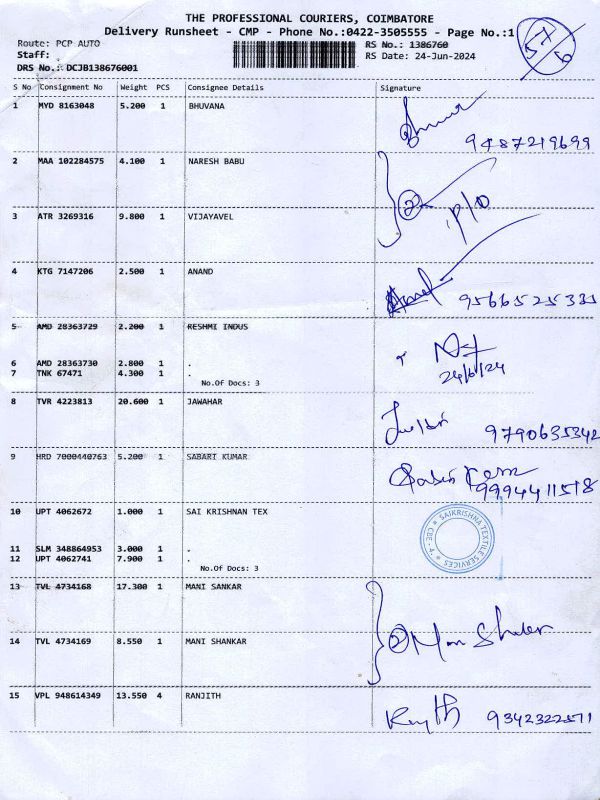 THE PROFESSIONAL COURIERS, COIMBATORE
Delivery Runsheet - CMP - Phone No.:0422-3505555 - Page No.:1
57
6
Route: PCP AUTO
RS No.: 1386760
Staff:
RS Date: 24-Jun-2024
DRS No.: DCJB138676001
S No Consignment No Weight PCS Consignee Details Signature
1 MYD 8163048 5.200 1 BHUVANA
9487219699
2 MAA 102284575 4.100 1 NARESH BABU
2
P/O
3 ATR 3269316 9.800 1 VIJAYAVEL
4 KTG 7147206 2.500 1 ANAND
9566525331
5 AMD 28363729 2.200 1 RESHMI INDUS
6 AMD 28363730 2.800 1 .
7 TNK 67471 4.300 1 .
24/6/24
No.Of Docs: 3
8 TVR 4223813 20.600 1 JAWAHAR
9790635342
9 HRD 7000440763 5.200 1 SABARI KUMAR
9994411518
10 UPT 4062672 1.000 1 SAI KRISHNAN TEX
SAIKRISHNA TEXTILE SERVICES CBE - 4
11 SLM 348864953 3.000 1 .
12 UPT 4062741 7.900 1 .
No.Of Docs: 3
13 TVL 4734168 17.300 1 MANI SANKAR
2
14 TVL 4734169 8.550 1 MANI SHANKAR
15 VPL 948614349 13.550 4 RANJITH
9342322571